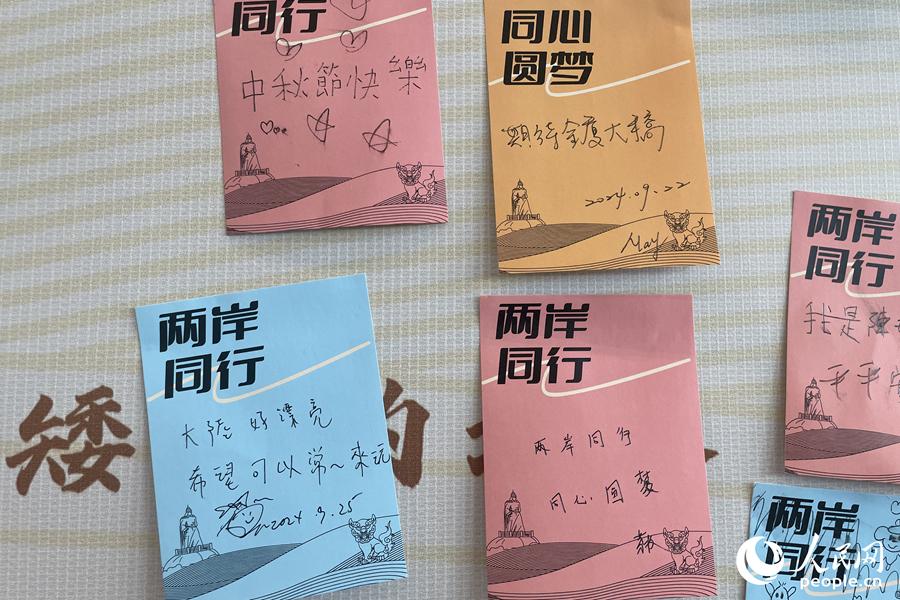 同行
中秋節快樂
同心
圆梦
期待金厦大橋
2024.09.22
May
两岸
同行
大陸好漂亮
希望可以常~來玩
2024.9.25
两岸
同行
两岸同行
同心圆夢
两岸
同行
我是陳
两岸
同行
矮
的
人民网
people.cn